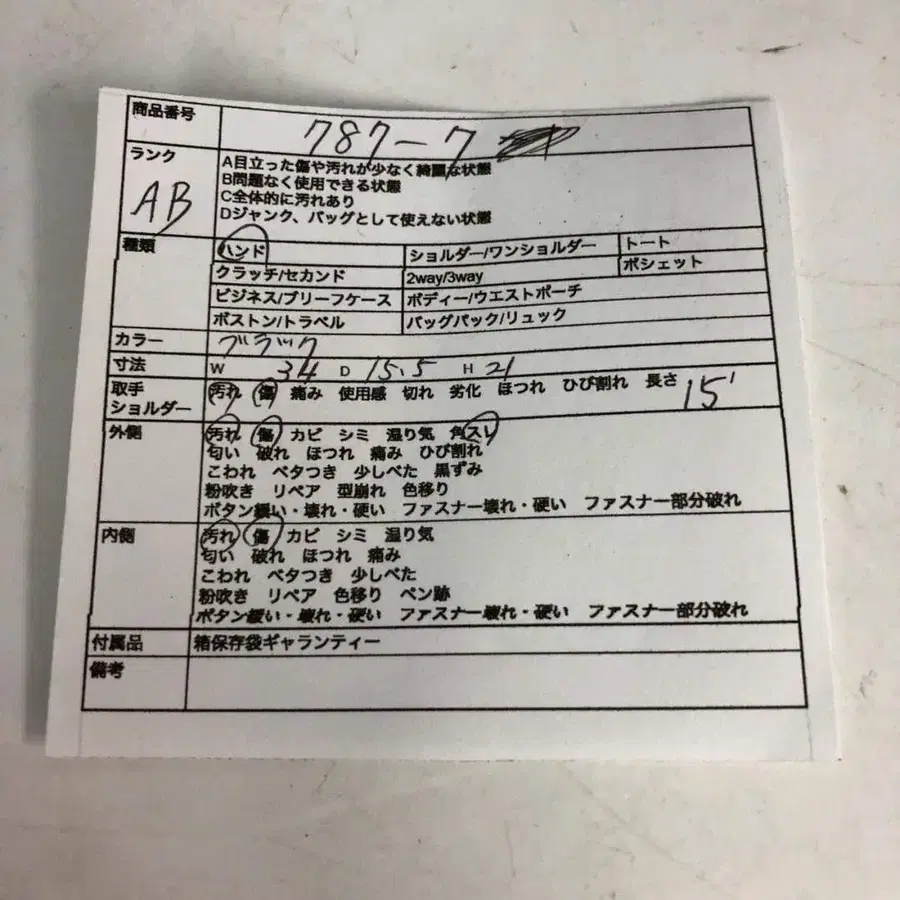 商品番号 787-7
ランク AB
A目立った傷や汚れが少なく綺麗な状態
B問題なく使用できる状態
C全体的に汚れあり
Dジャンク、バッグとして使えない状態
種類 ハンド ショルダー/ワンショルダー トート
クラッチ/セカンド 2way/3way ポシェット
ビジネス/ブリーフケース ボディー/ウエストポーチ
ボストン/トラベル バッグパック/リュック
カラー ブラック
寸法 W 34 D 15.5 H 21
取手 汚れ 傷 痛み 使用感 切れ 劣化 ほつれ ひび割れ 長さ 15
ショルダー
外側 汚れ 傷 カビ シミ 湿り気 角スレ
匂い 破れ ほつれ 痛み ひび割れ
こわれ ベタつき 少しべた 黒ずみ
粉吹き リペア 型崩れ 色移り
ボタン緩い・壊れ・硬い ファスナー壊れ・硬い ファスナー部分破れ
内側 汚れ 傷 カビ シミ 湿り気
匂い 破れ ほつれ 痛み
こわれ ベタつき 少しべた
粉吹き リペア 色移り ペン跡
ボタン緩い・壊れ・硬い ファスナー壊れ・硬い ファスナー部分破れ
付属品 箱保存袋ギャランティー
備考